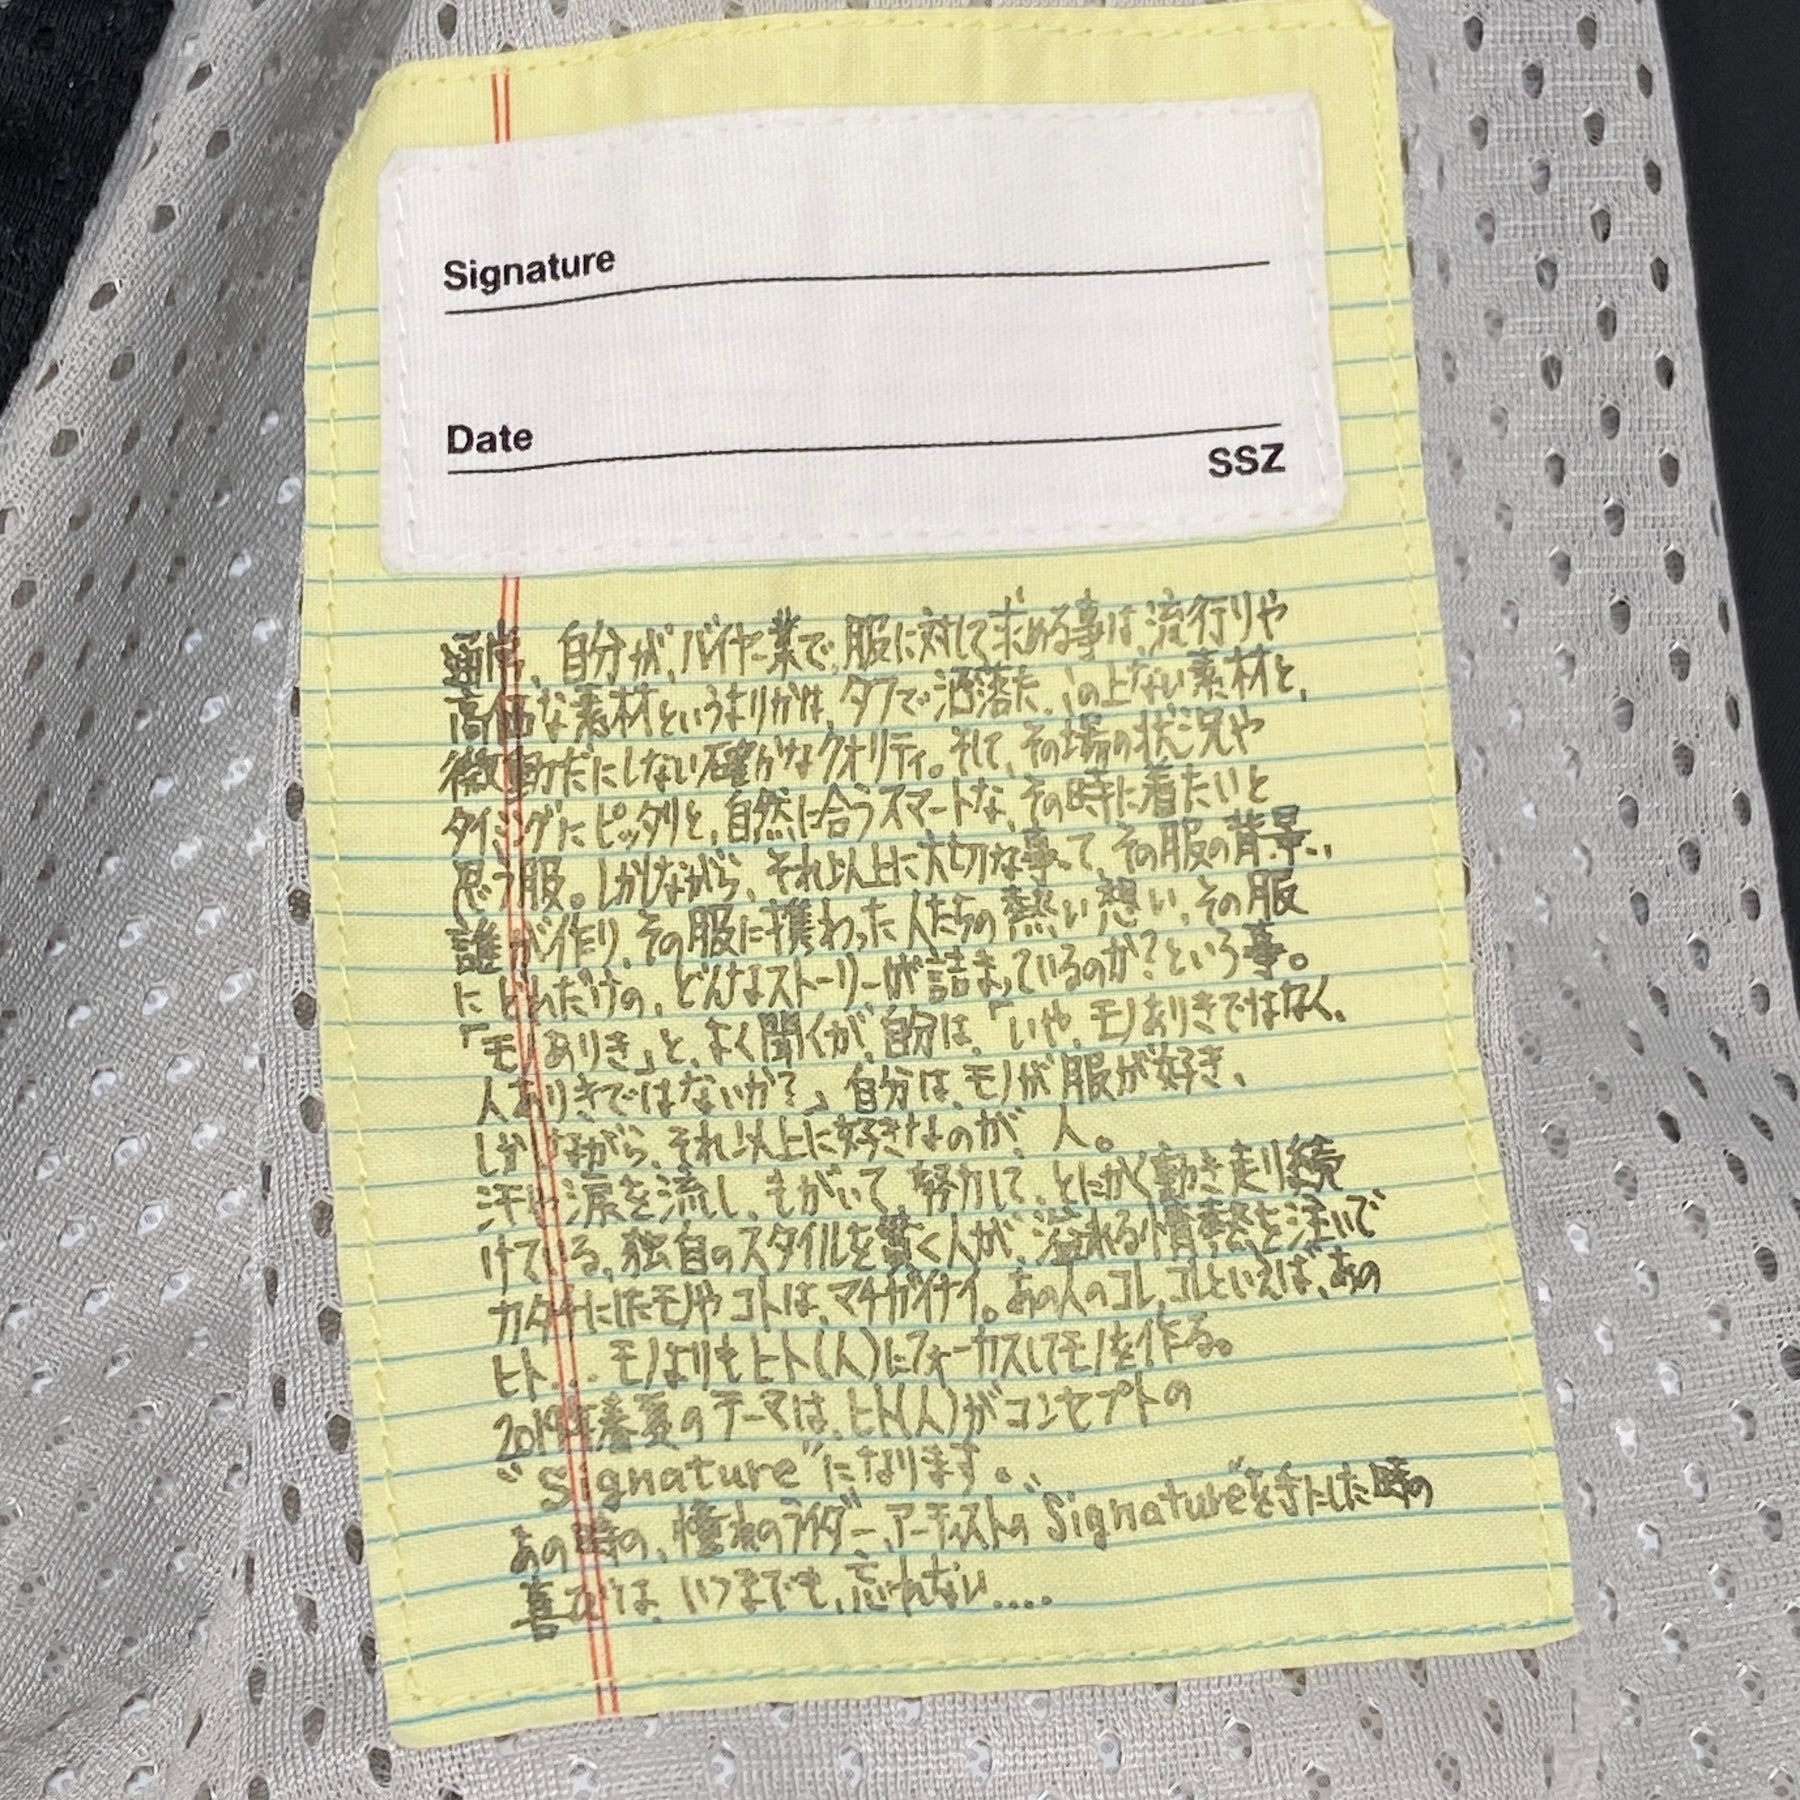 Signature
Date
SSZ
通常、自分が、バイヤー業で、服に対して求める事は、流行りや
高価な素材というよりかは、タフで洒落た、この上ない素材と、
微動だにしない確かなクオリティ。そして、その場の状況や
タイミングにピッタリと、自然に合うスマートな、その時に着たいと
思う服。しかしながら、それ以上に大切な事って、その服の背景、、
誰が作り、その服に携わった人たちの熱い想い、その服
にどれだけの、どんなストーリーが詰まっているのか？という事。
「モノありき」と、よく聞くが、自分は、「いや、モノありきではなく、
人ありきではないか？」自分は、モノが服が好き、
しかしながら、それ以上に好きなのが、人。
汗や涙を流し、もがいて、努力して、とにかく動き走り続
けている、独自のスタイルを貫く人が、溢れる情熱を注いで
カタチにしたモノやコトは、マチガイナイ。あの人のコレ、コレといえば、あの
ヒト... モノよりもヒト(人)にフォーカスしてモノを作る。
2019年春夏のテーマは、ヒト(人)がコンセプトの
“Signature”になります。
あの時の、憧れのライダー、アーティストの“Signature”を手にした時の
喜びは、いつまでも、忘れない....